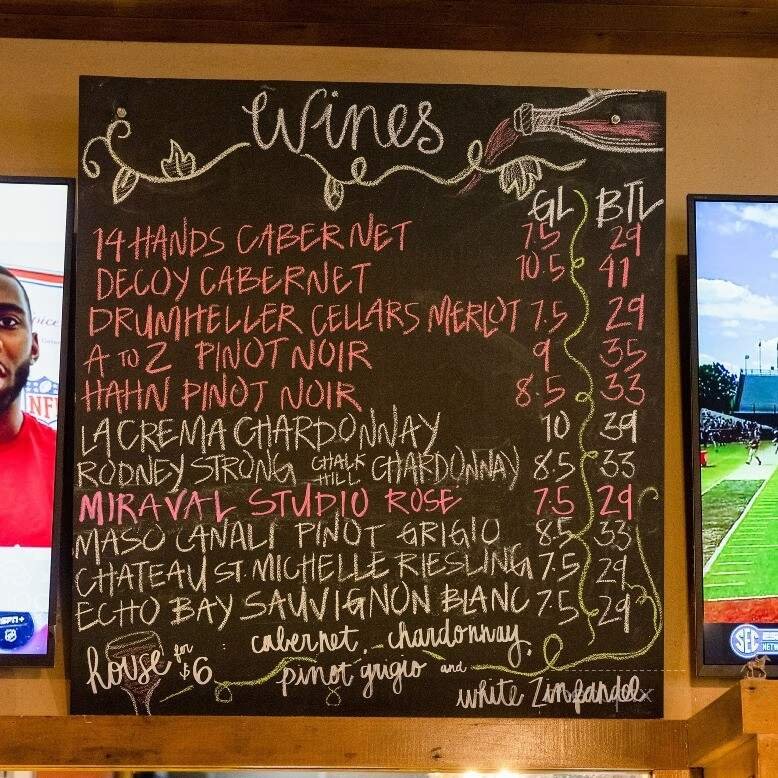 Wines
GL BTL
14 HANDS CABERNET 7.5 29
DECOY CABERNET 10.5 41
DRUMHELLER CELLARS MERLOT 7.5 29
A TO Z PINOT NOIR 9 35
HAHN PINOT NOIR 8.5 33
LA CREMA CHARDONNAY 10 39
RODNEY STRONG CHALK HILL CHARDONNAY 8.5 33
MIRAVAL STUDIO ROSE 7.5 29
MASO CANALI PINOT GRIGIO 8.5 33
CHATEAU ST. MICHELLE RIESLING 7.5 29
ECHO BAY SAUVIGNON BLANC 7.5 29
house for $6 cabernet, chardonnay,
pinot grigio and
white Zinfandel
NF
ESPN+
SEC